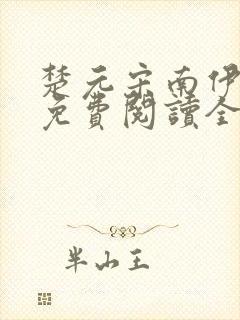 楚元宋南伊
免費閱讀全
半山王